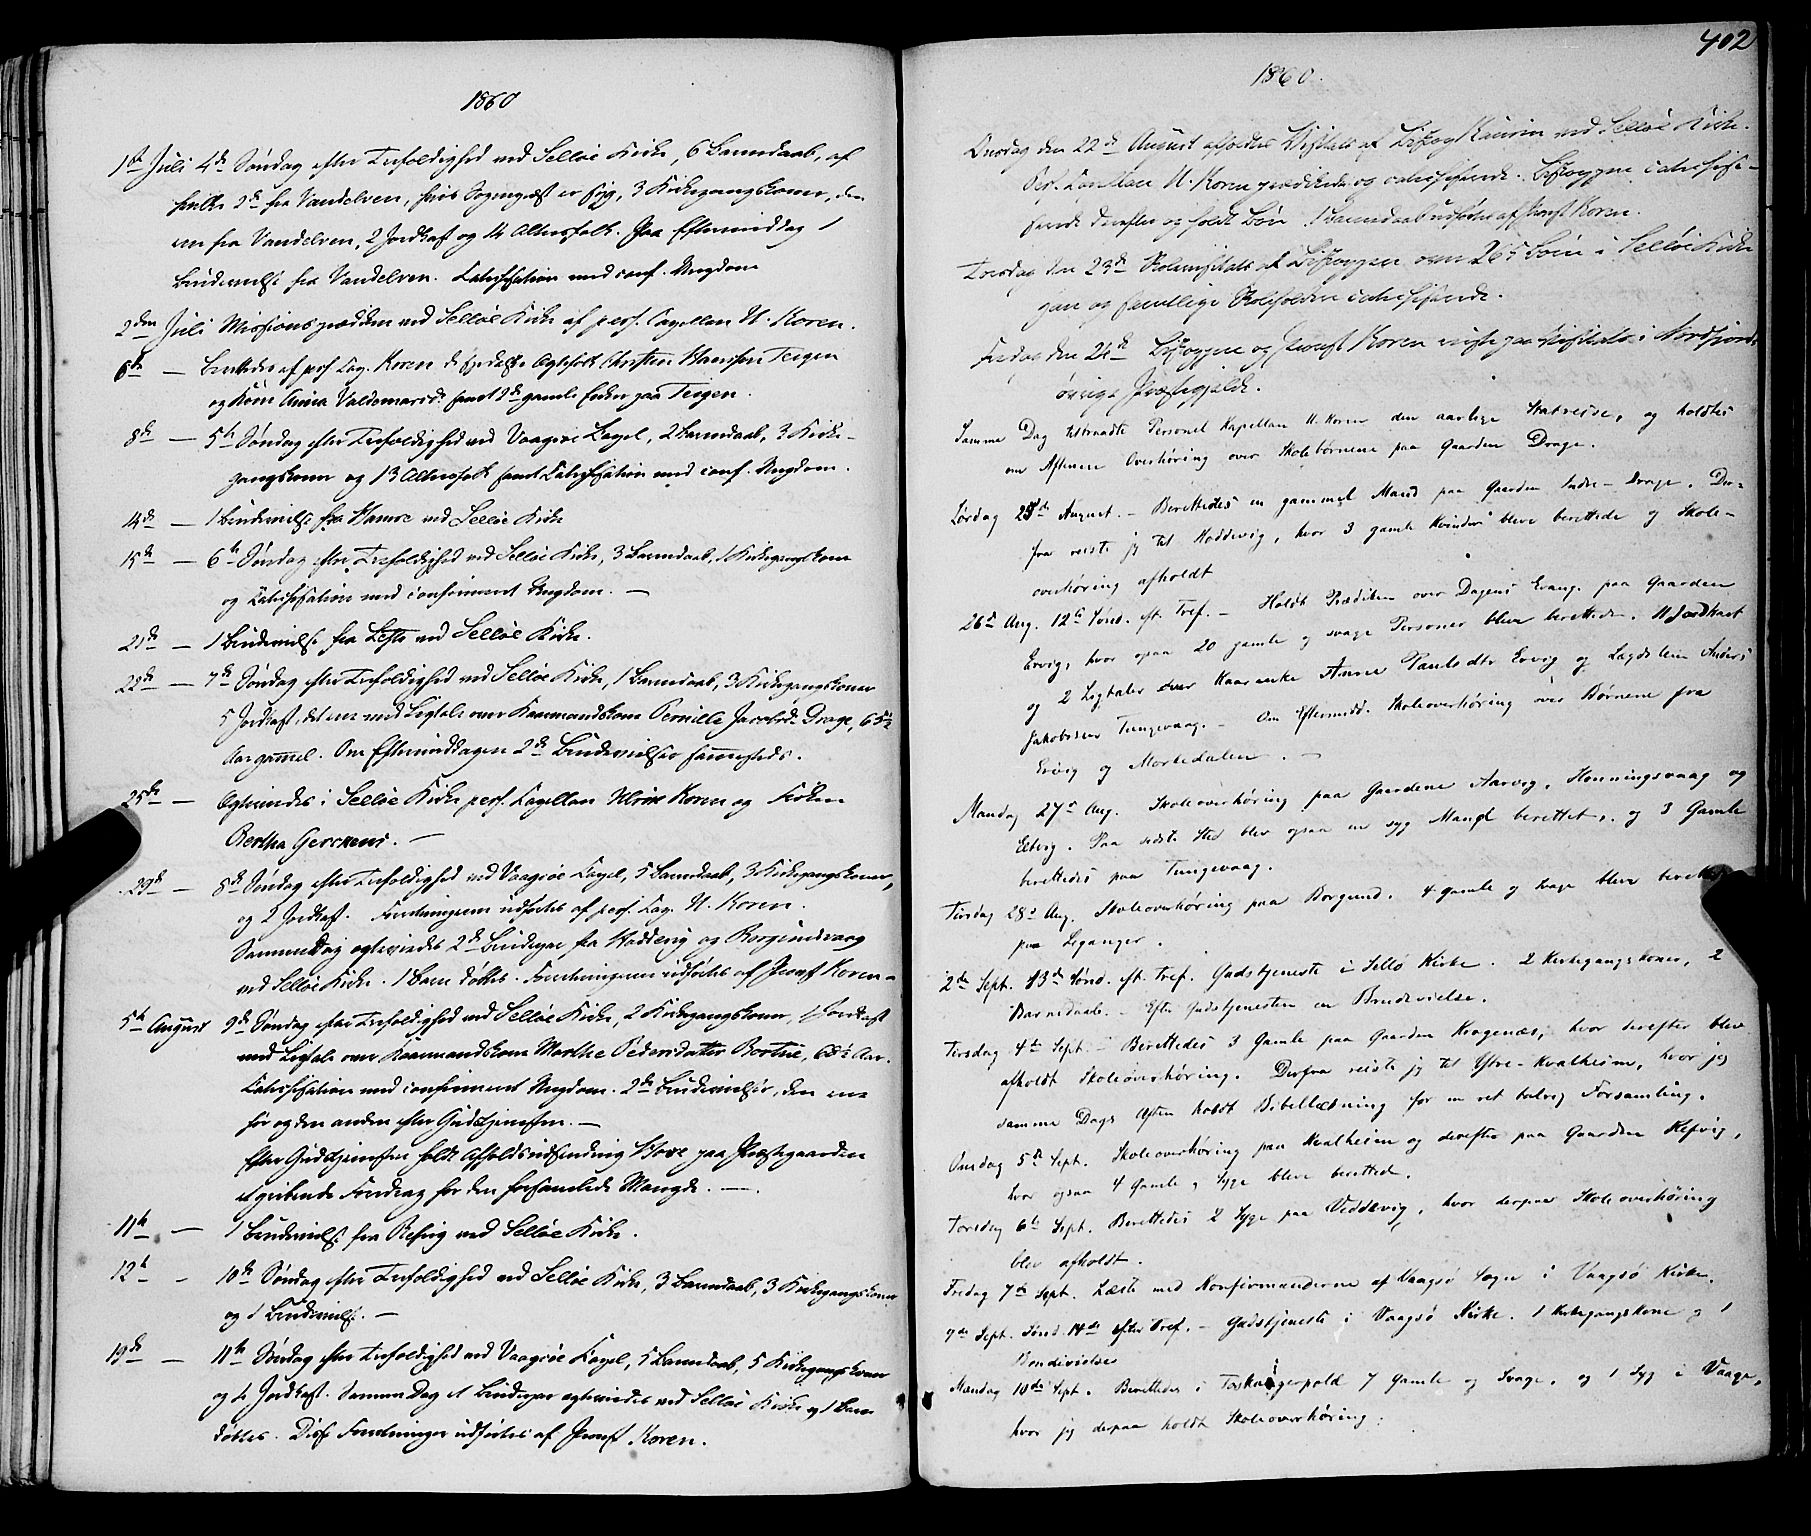 1860
1ste Juli 4de Søndag efter Trefoldighed ved Selløe Kirke, 6 Barnedaab, af
hvilke 2de fra Vandelven, hvis Sognepræst er syg, 3 Kirkegangskoner, den
ene fra Vandelven, 2 Jordkast og 14 Altersfolk. Paa Eftermiddag 1
Brudevielse fra Vandelven. Catechisation med conf. Ungdom
2den Juli Missionsprædiken ved Selløe Kirke af pers. Capellan U. Koren.
6te — Berettedes af pers. Cap. Koren de Ægtefolk Christen Hansen Teigen
og Kone Anna Valdemarsd. samt 2de gamle Enker paa Teigen.
8de — 5te Søndag efter Trefoldighed ved Vaagsøe Capel, 2 Barnedaab, 3 Kirke-
gangskoner og 13 Altersfolk samt Catechisation med conf. Ungdom.
14de — 1 Brudevielse fra Hamre ved Selløe Kirke
15de — 6te Søndag efter Trefoldighed ved Selløe Kirke, 3 Barnedaab, 1 Kirkegangskone
og Catechisation med confirmeret Ungdom. —
21de — 1 Brudevielse fra ved Selløe Kirke.
22de — 7de Søndag efter Trefoldighed ved Selløe Kirke, 1 Barnedaab, 3 Kirkegangskoner
5 Jordkast, det ene med Ligtale over Kaarmandskone Pernille Jacobsd. Drage, 65½
Aar gammel. Om Eftermiddagen 2de Brudevielser sammesteds.
25de — Ægteviedes i Selløe Kirke pers. Capellan Ulrik Koren og Frøken
Bertha Gerckens. —
29de — 8de Søndag efter Trefoldighed ved Vaagsøe Capel, 5 Barnedaab, 3 Kirkegangskoner,
og 2 Jordkast. Forretningerne udførtes af pers. Cap. U. Koren.
Sammedag ægteviedes 2de Brudepar fra Hoddevig og Borgundvaag
ved Selløe Kirke. 1 Barn døbtes. Forretningerne udførtes af Provst Koren —
5te August 9de Søndag efter Trefoldighed ved Selløe Kirke, 2 Kirkegangskoner, 1 Jordkast
med Ligtale over Kaarmandskone Marthe Pedersdatter Bortne, 68½ Aar.
Catechisation med confirmeret Ungdom. 2de Brudevielser, den ene
før og den anden efter Gudstjenesten. —
Efter Gudstjenesten holdt Afholdsudsending paa Præstegaarden
et gribende Foredrag for den forsamlede Mængde. —
11te — 1 Brudevielse fra Refvig ved Selløe Kirke.
12te — 10de Søndag efter Trefoldighed ved Selløe Kirke, 3 Barnedaab, 3 Kirkegangskoner
og 1 Brudevielse. —
19de — 11te Søndag efter Trefoldighed ved Vaagsøe Capel, 5 Barnedaab, 5 Kirkegangskoner
og 4 Jordkast. Samme Dag et Brudepar ægteviedes ved Selløe Kirke og 1 Barn
døbtes. Disse Forretninger udførtes af Provst Koren.
402
1860.
Onsdag den 22de August afholdtes Visitats af Biskop Kaurin ved Selløe Kirke.
Pers. Capellan U. Koren prædikede og catechiserede. Biskoppen catechise-
rede derefter og holdt Bøn. 1 Barnedaab udførtes af Provst Koren.
Torsdag den 23de Skolevisitats af Biskoppen over 265 Børn i Selløe Kirke
og samtlige Skoleholdere catechiserede.
Fredag den 24de Biskoppen og Provst Koren reiste paa Visitats i Nordfjords
øvrige Præstegjelde.
Samme Dag tiltraadte Personel Kapellan U. Koren den aarlige Statreise, og holdtes
om Aftenen Overhøring over Skolebørnene paa Gaarden Drage.
Lørdag 25de August. — Berettedes en gammel Mand paa Gaarden Indre-Drage. Der-
fra reiste jeg til Hoddevig, hvor 3 gamle Kvinder bleve berettede og Skole-
overhøring afholdt
26de Aug. 12te Sønd. eft. Tref. — Holdt Prædiken over Dagens Evang. paa Gaarden
Ervig, hvor ogsaa 20 gamle og svage Personer bleve berettede. 11 Jordkast
og 2 Ligtaler over Kaarenke Anne Paulsdtr Ervig og Lægdslem Anders
Jakobssen Tungevaag. — Om Eftermidd. Skoleoverhøring over Børnene fra
Ervig og Morkedalen. —
Mandag 27de Aug. Skoleoverhøring paa Gaardene Aarvig, Honningsvaag og
Eltvig. Paa sidste Sted blev ogsaa en syg Mand berettet, og 3 Gamle
berettedes paa Tungevaag.
Tirsdag 28de Aug. Skoleoverhøring paa Borgund. 4 gamle og svage bleve berettede
paa Leganger.
2den Sept. 13de Sønd. eft. Tref. Gudstjeneste i Sellø Kirke. 2 Kirkegangskoner, 2
Barnedaab. — Efter Gudstjenesten en Brudevielse.
Tirsdag 4de Sept. — Berettedes 3 Gamle paa Gaarden Kragenæs, hvor derefter blev
afholdt Skoleoverhøring. Derfra reiste jeg til Ytre-Kvalheim, hvor jeg
samme Dags Aften holdt Bibellæsning for en ret talrig Forsamling.
Onsdag 5te Sept. Skoleoverhøring paa Kvalheim og derefter paa Gaarden Refvig,
hvor ogsaa 4 Gamle og Syge bleve berettede.
Torsdag 6te Sept. Berettedes 2 Syge paa Vedddvig, hvor derpaa Skoleoverhøring
blev afholdt.
Fredag 7de Sept. Læste med Konfirmanderne af Vaagsø Sogn i Vaagsø Kirke.
9de Sept. Sønd. 14de efter Tref. — Gudstjeneste i Vaagsø Kirke. 1 Kirkegangskone og 1
Brudevielse
Mandag 10de Sept. Berettedes i Torskangerpold 7 Gamle og Svage, og 1 Syg i Vaage,
hvor jeg derpaa holdt Skoleoverhøring.